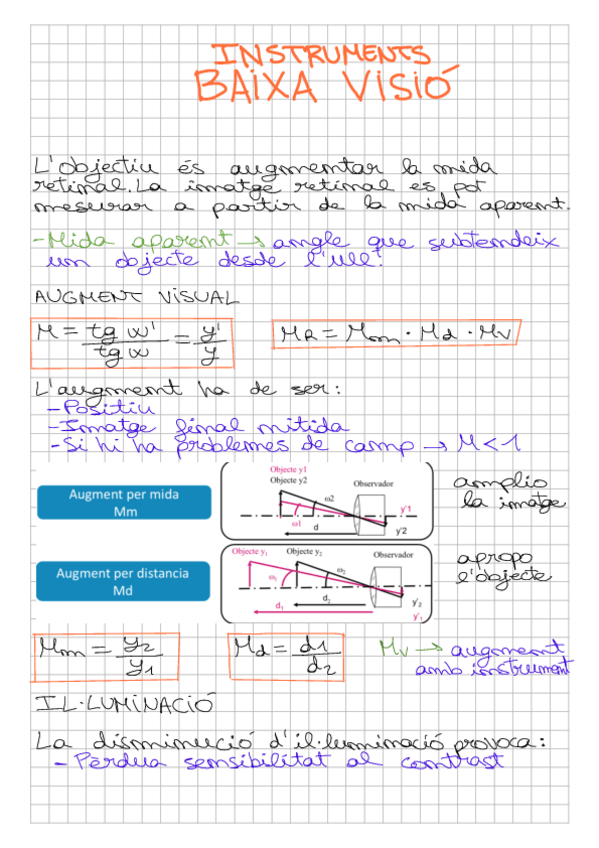 INSTRUMENTS
BAIXA VISIÓ
L'objectiu és augmentar la mida
retinal. La imatge retinal es pot
mesurar a partir de la mida aparent.
-Mida aparent → angle que subtendeix
un objecte desde l'ull.
AUGMENT VISUAL
M = tg ω' / tg ω = y' / y
MR = Mm · Md · Mv
L'augment ha de ser:
-Positiu
-Imatge final nítida
-Si hi ha problemes de camp → M<1
Objecte y1
Objecte y2
Observador
ω2
ω1
d
y'1
y'2
Augment per mida
Mm
amplio
la imatge
Objecte y₁
Objecte y₂
Observador
ω₁
ω₂
d₂
d₁
y'₂
y'₁
Augment per distancia
Md
apropo
l'objecte
Mm = y2 / y1
Md = d1 / d2
Mv → augment
amb instrument
IL·LUMINACIÓ
La disminució d'il·luminació provoca:
- Pèrdua sensibilitat al contrast